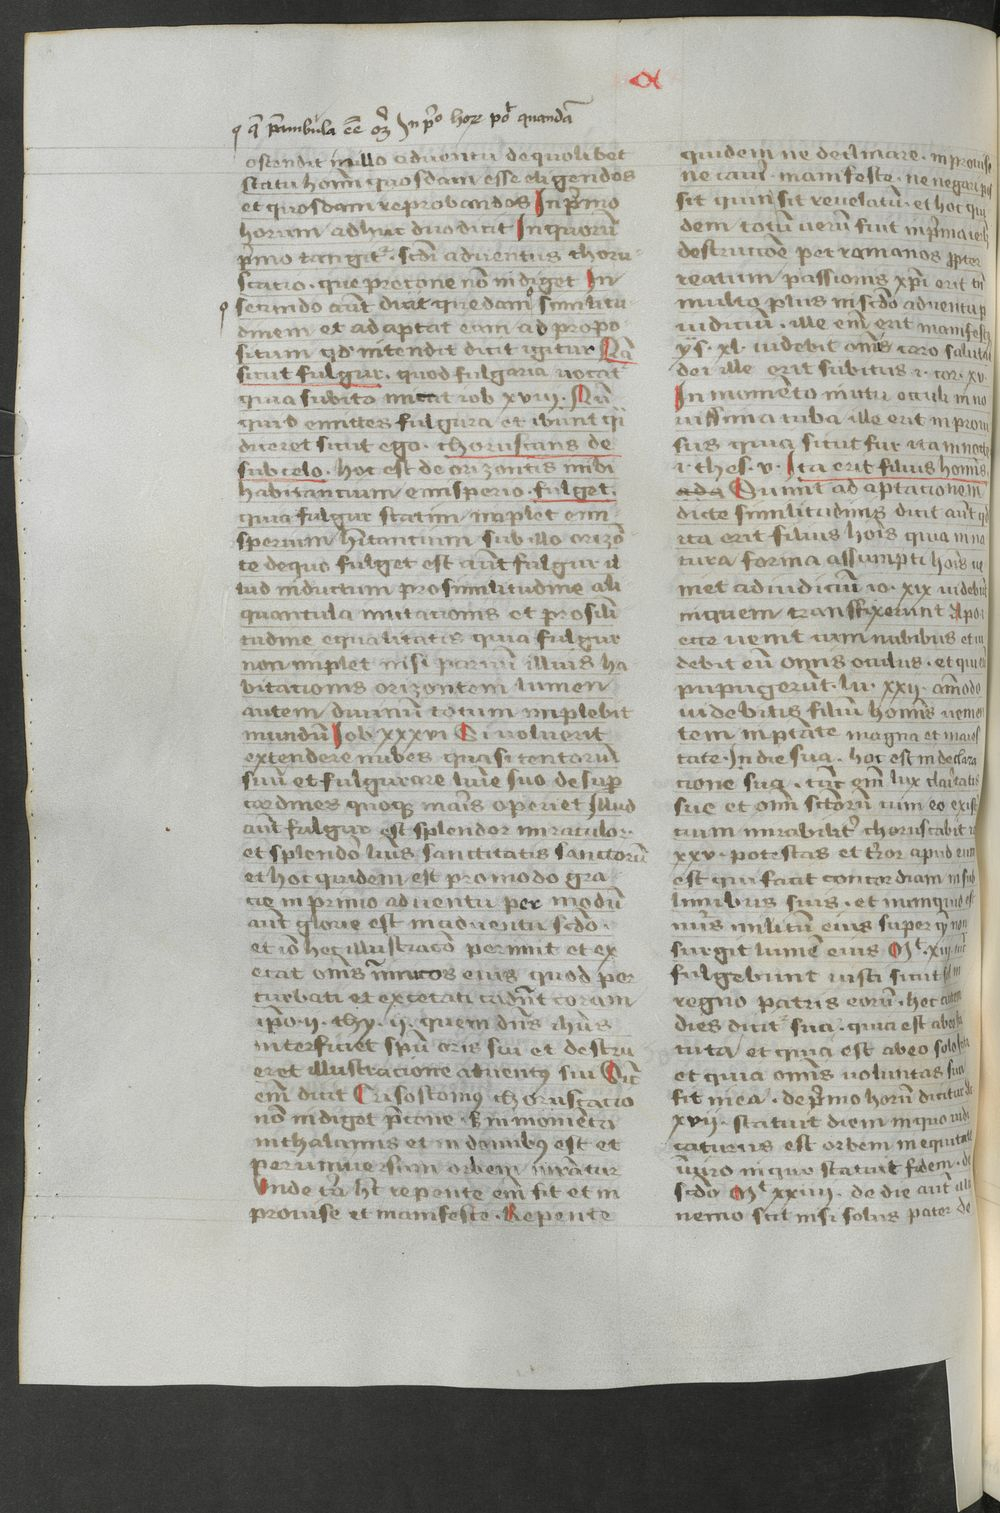 α
q̄ p̄ambula eē oꝫ In p̄o horꝫ poĺ quandā
ostendit in illo aduentu de quolibet
statu hom̄ quosdam esse eligendos
et quosdam reprobandos In p̄mo
horum adhuc duo dicit In quorū
p̄mo tangitᷣ scđi aduentus choru-
scatio. que precone nō indiget In
secundo aut̄ dicit quedam similitu
dinem et adaptat eam ad propo
situm qđ intendit dicit igitur Nā
sicut fulgur. quod fulgura uocat
quia subito micat iob xviij. Nū
quid emittes fulgura et ibunt qͥ
diceret sicut ego. choruscans de
sub celo. hoc est de orizontis inibi
habitantium emisperio. fulget.
quia fulgur statim implet emi
sperium hītantium sub illo orizō
te de quo fulget est aut̄ fulgur il
lud inductum pro similitudine ali
quantula mutationis et pro sili
tudine equalitatis quia fulgur
non implet nisi paruū illius ha
bitationis orizontem lumen
autem diuinū totum implebit
mundū Iob xxxvi Si uoluerit
extendere nubes quasi tentoriū
suū et fulgurare lūie suo desup̄
cardines quoqꝫ maīs operiet Illud
aut̄ fulgur est splendor miraculoꝝ
et splendor luīs sanctitatis sanctorū
et hoc quidem est pro modo gra
cie in primo aduentu per modū
aut̄ glorie est in aduentu scđo.
et iō hec illustracō perimit et ex
cecat om̄s īimicos eius quod per
turbati et excecati cadūt coram
ip̄o. ij. thy. ij. quem dn̄s ih̄us
interficiet sp̄u oris sui et destru
eret illustracione aduentꝰ sui Sic̄
em̄ dicit Crisostomus choruscacio
nō indiget p̄cone. s̄ in momēto
in thalamis et in domibꝰ est et
per uniuersum orbem
Inde tͣ hꝫ repente em̄ fit et in
prouise et manifeste. Repente
quidem ne declinare. inprouise
ne caueͬ. manifeste. ne negari pos
sit quin sit reuelatū. et hoc qui
dem totū uerū fuit in p̄ma ierlꝫ
destrucōe per romanos ꝓpter
reatum passionis xp̄i erit tn̄
multo plus in scđo aduentu ꝑ
iudiciū. ille em̄ erit manifestꝰ
ys. xl. uidebit om̄is caro salutare
dei ille erit subitus i. cor. xv.
In momēto in ictu oculi in no
uissima tuba ille erit inproui
sus quia sicut fur ita in nocte
i. thes. v. Ita erit filius homīs.
Sumit adaptacionem
dicte similitudinis dicit aut̄ qđ
ita erit filius hoīs quia in na
tura forma assumpti hoīs ue
niet ad iudiciū io. xix uidebūt
in quem transfixerunt Apoc
ecce uenit cum nubibus et ui
debit eū omnis oculus. et qui eū
pupugerūt. lu. xxij. amōdo
uidebitis filiū homīs uenien
tem in ptāte magna et maies
tate. In die sua. hoc est in declara
cione sua. tūc em̄ lux claritatis
sue et om̄i sctōrū cum eo exis
cium mirabilitᷣ choruscabit
xxv. potestas et tᷣror apud eum
est qui facit concordiam in sub
limibus suis. et numquid est
nūs militū eius super quē non
surgit lumē eius Mt. xiij. iūc
fulgebunt iusti sicut sol in
regno patris eorū. hec autem
dies dicitᷣ sua. quia est ab eo
tuta et quia est ab eo solo
et quia omīs uoluntas sua
fit in ea. de p̄mo horū dicitur
xvij. statuit diem in quo iudi
caturus est orbem in equitate
ī uiro in quo statuit fidem. de
scđo Mt xxiiij. de die aut̄ illa
nemo scit nisi solus pater de